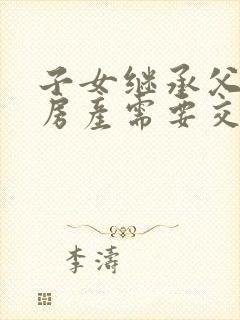 子女继承父
房产需要交
李濤